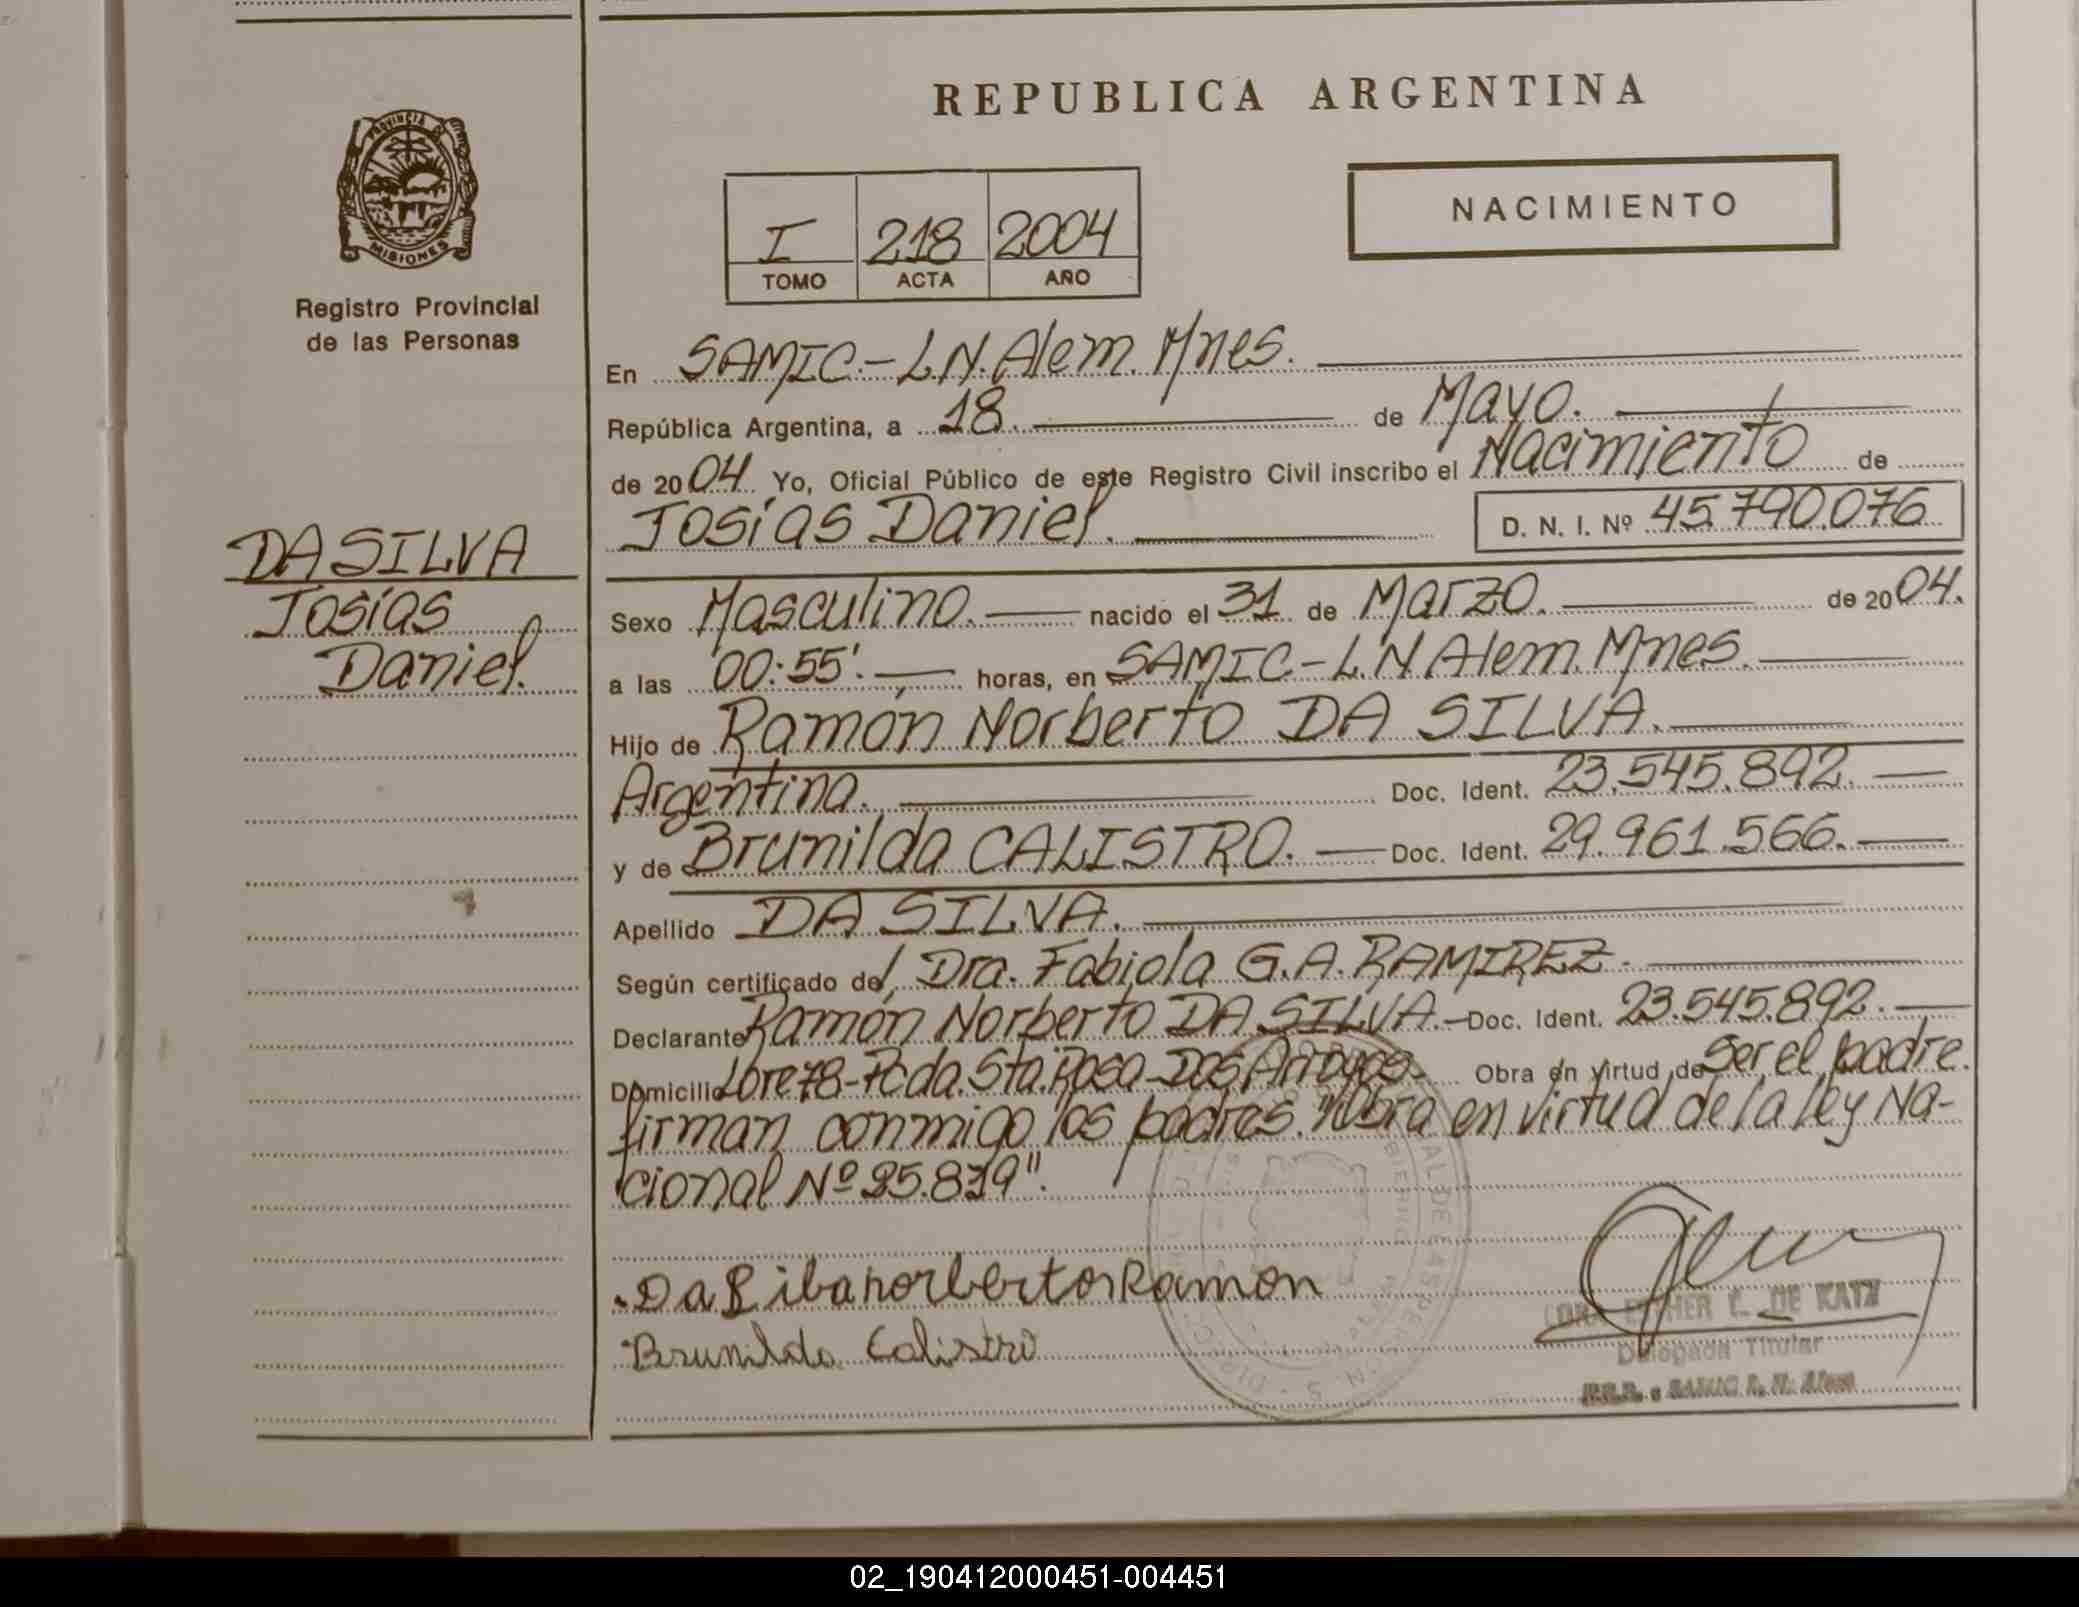 REPUBLICA ARGENTINA
PROVINCIA DE
MISIONES
Registro Provincial
de las Personas
NACIMIENTO
I 218 2004
TOMO ACTA AÑO
En SAMIC.-L.N.Alem. Mnes.
República Argentina, a 18. de Mayo.
de 2004 Yo, Oficial Público de este Registro Civil inscribo el Nacimiento de
Josías Daniel. D. N. I. Nº 45.790.076
DA SILVA
Josías
Daniel.
Sexo Masculino. nacido el 31 de Marzo. de 2004.
a las 00:55'. horas, en SAMIC-L.N Alem. Mnes.
Hijo de Ramón Norberto DA SILVA.
Argentina. Doc. Ident. 23.545.892.
y de Brunilda CALISTRO. Doc. Ident. 29.961.566.
Apellido DA SILVA.
Según certificado del Dra. Fabiola G.A. RAMIREZ.
Declarante Ramón Norberto DA SILVA.- Doc. Ident. 23.545.892.
Domicilio Lote 78-Pcda. Sta. Rosa-Dos Arroyos. Obra en virtud de Ser el padre.
firman conmigo los padres. "Obra en virtud de la ley Na-
cional Nº 25.819".
Da Silba norberto Ramon
Brunilda Calistro
ESTHER L. DE KATZ
Delegada Titular
SAMIC L. N. Alem
02_190412000451-004451